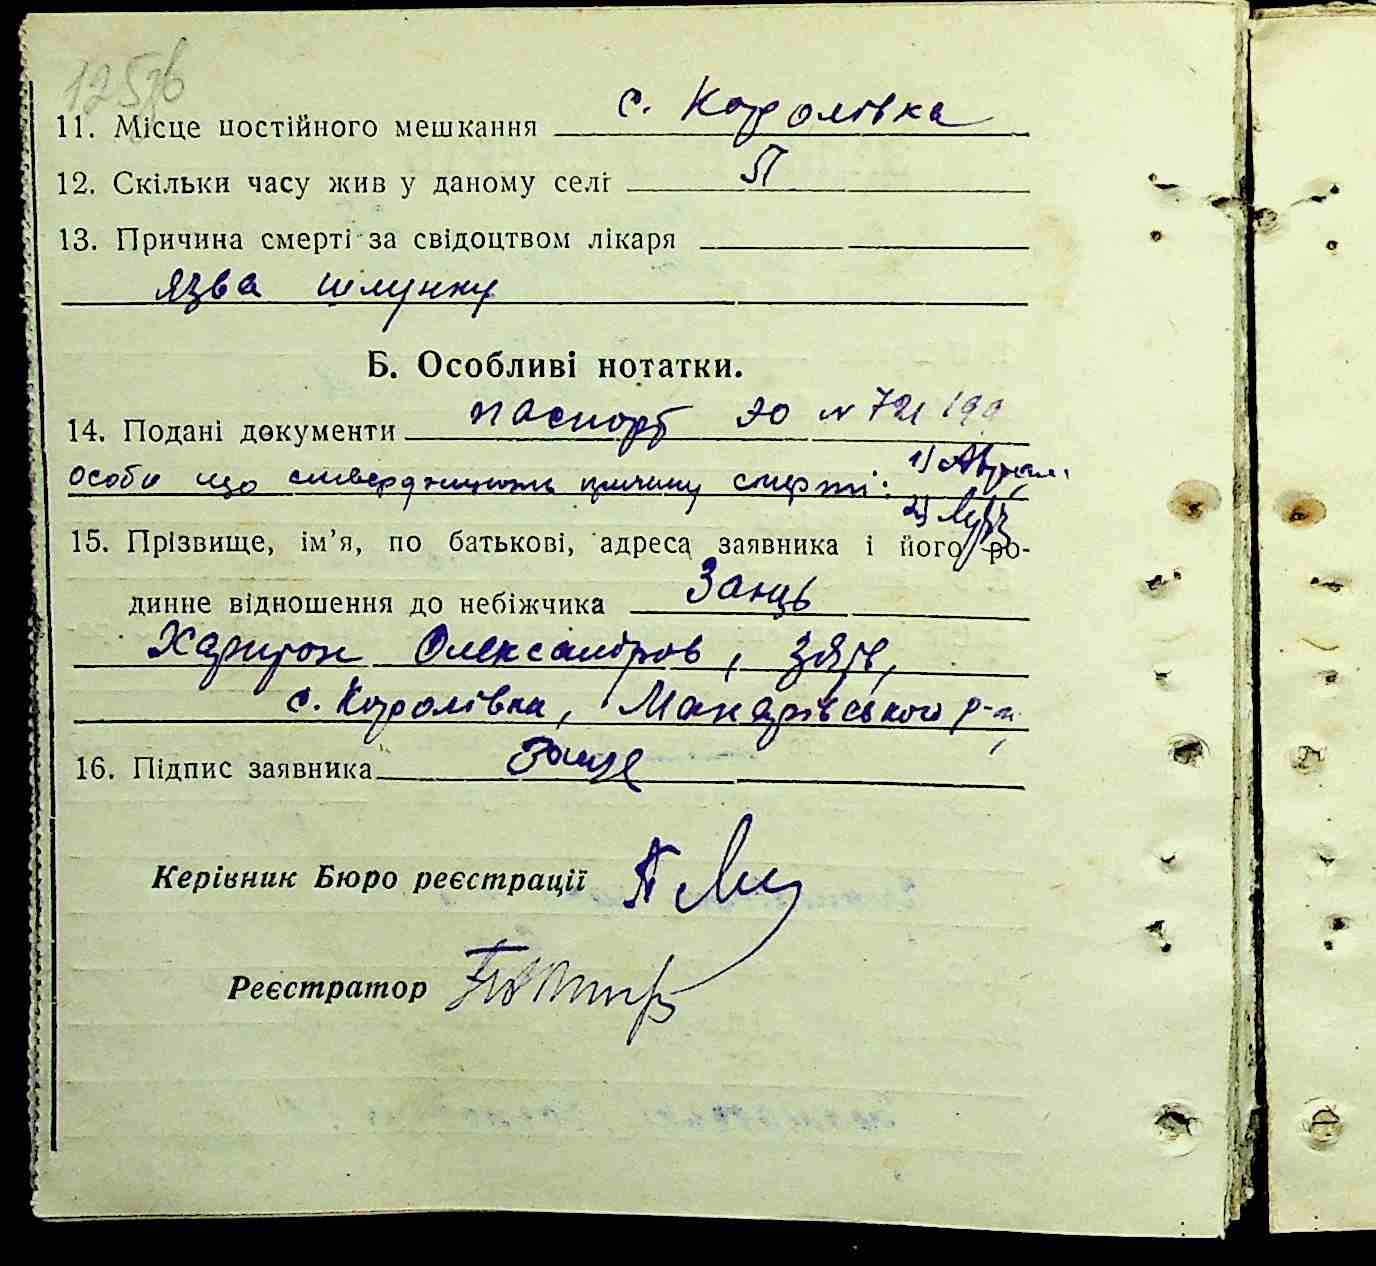 11. Місце постійного мешкання с. Королівка
12. Скільки часу жив у даному селі
13. Причина смерті за свідоцтвом лікаря
язва шлунку
Б. Особливі нотатки.
14. Подані документи паспорт ЭО №
особи що стверджують причину смерті: 1)
2)
15. Прізвище, ім'я, по батькові, адреса заявника і його ро-
динне відношення до небіжчика Заяць
Харитон Олександров, зять,
с. Королівка, Макарівського р-н
16. Підпис заявника
Керівник Бюро реєстрації
Реєстратор